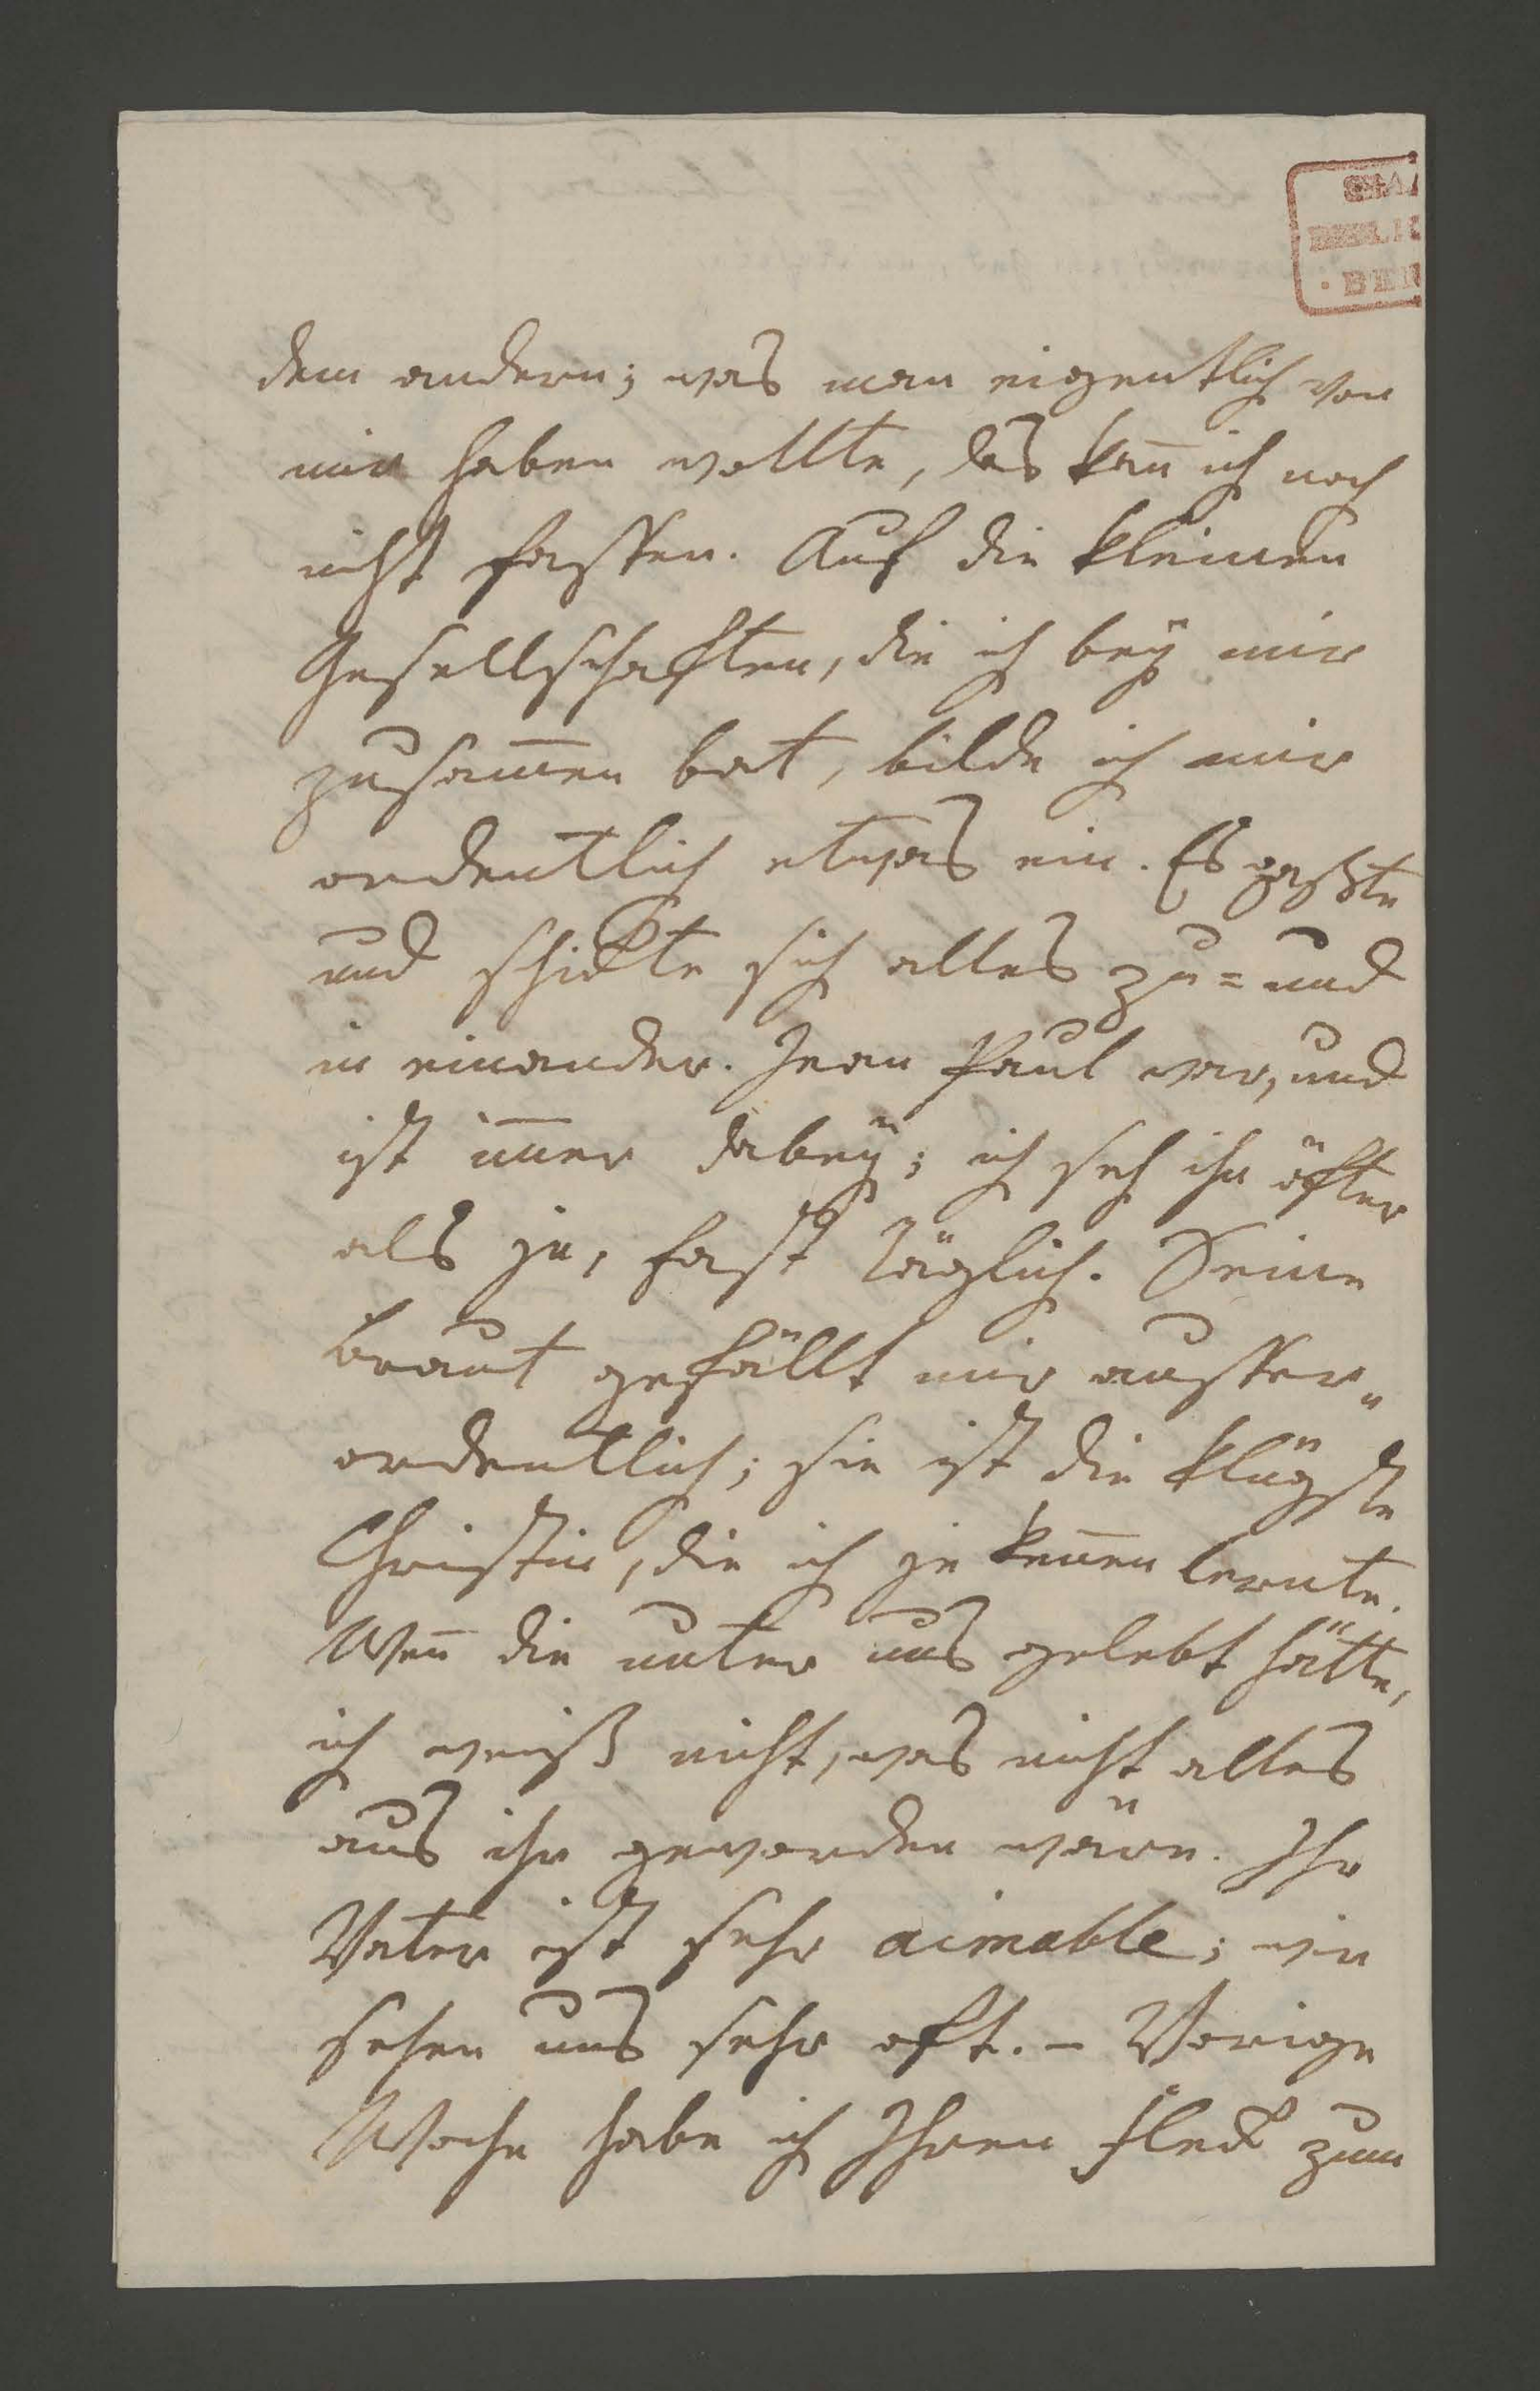 dem andern; was man eigentlich von
mir haben wollte, das kan̄ ich noch
nicht fassen. Auf die kleinen
Gesellschaften, die ich beÿ mir
zusam̄en bat, bilde ich mir
ordentlich etwas ein. Es paßte
und schickte sich alles zu= und
in einander. Jean Paul war, und
ist im̄er dabeÿ; ich seh ihn öfter
als je, fast täglich. Seine
Braut gefällt mir ausser„
ordentlich; sie ist die klügste
Christin, die ich je ken̄en lernte.
Wen̄ die unter uns gelebt hätte,
ich weiß nicht, was nicht alles
aus ihr geworden wäre. Ihr
Vater ist sehr aimable; wir
sehen uns sehr oft. – Vorige
Woche habe ich Ihren Fleck zum
BER